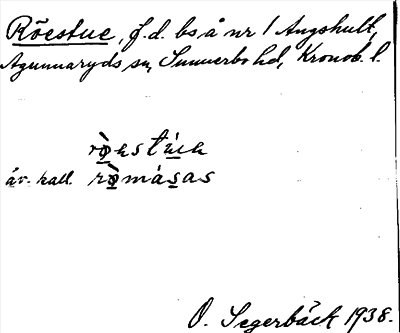 Röestue, f.d. bs å nr 1 Ängshult,
Agunnaryds sn, Sunnerbo hd, Kronob. l.
äv. kall.
O. Segerbäck 1938.